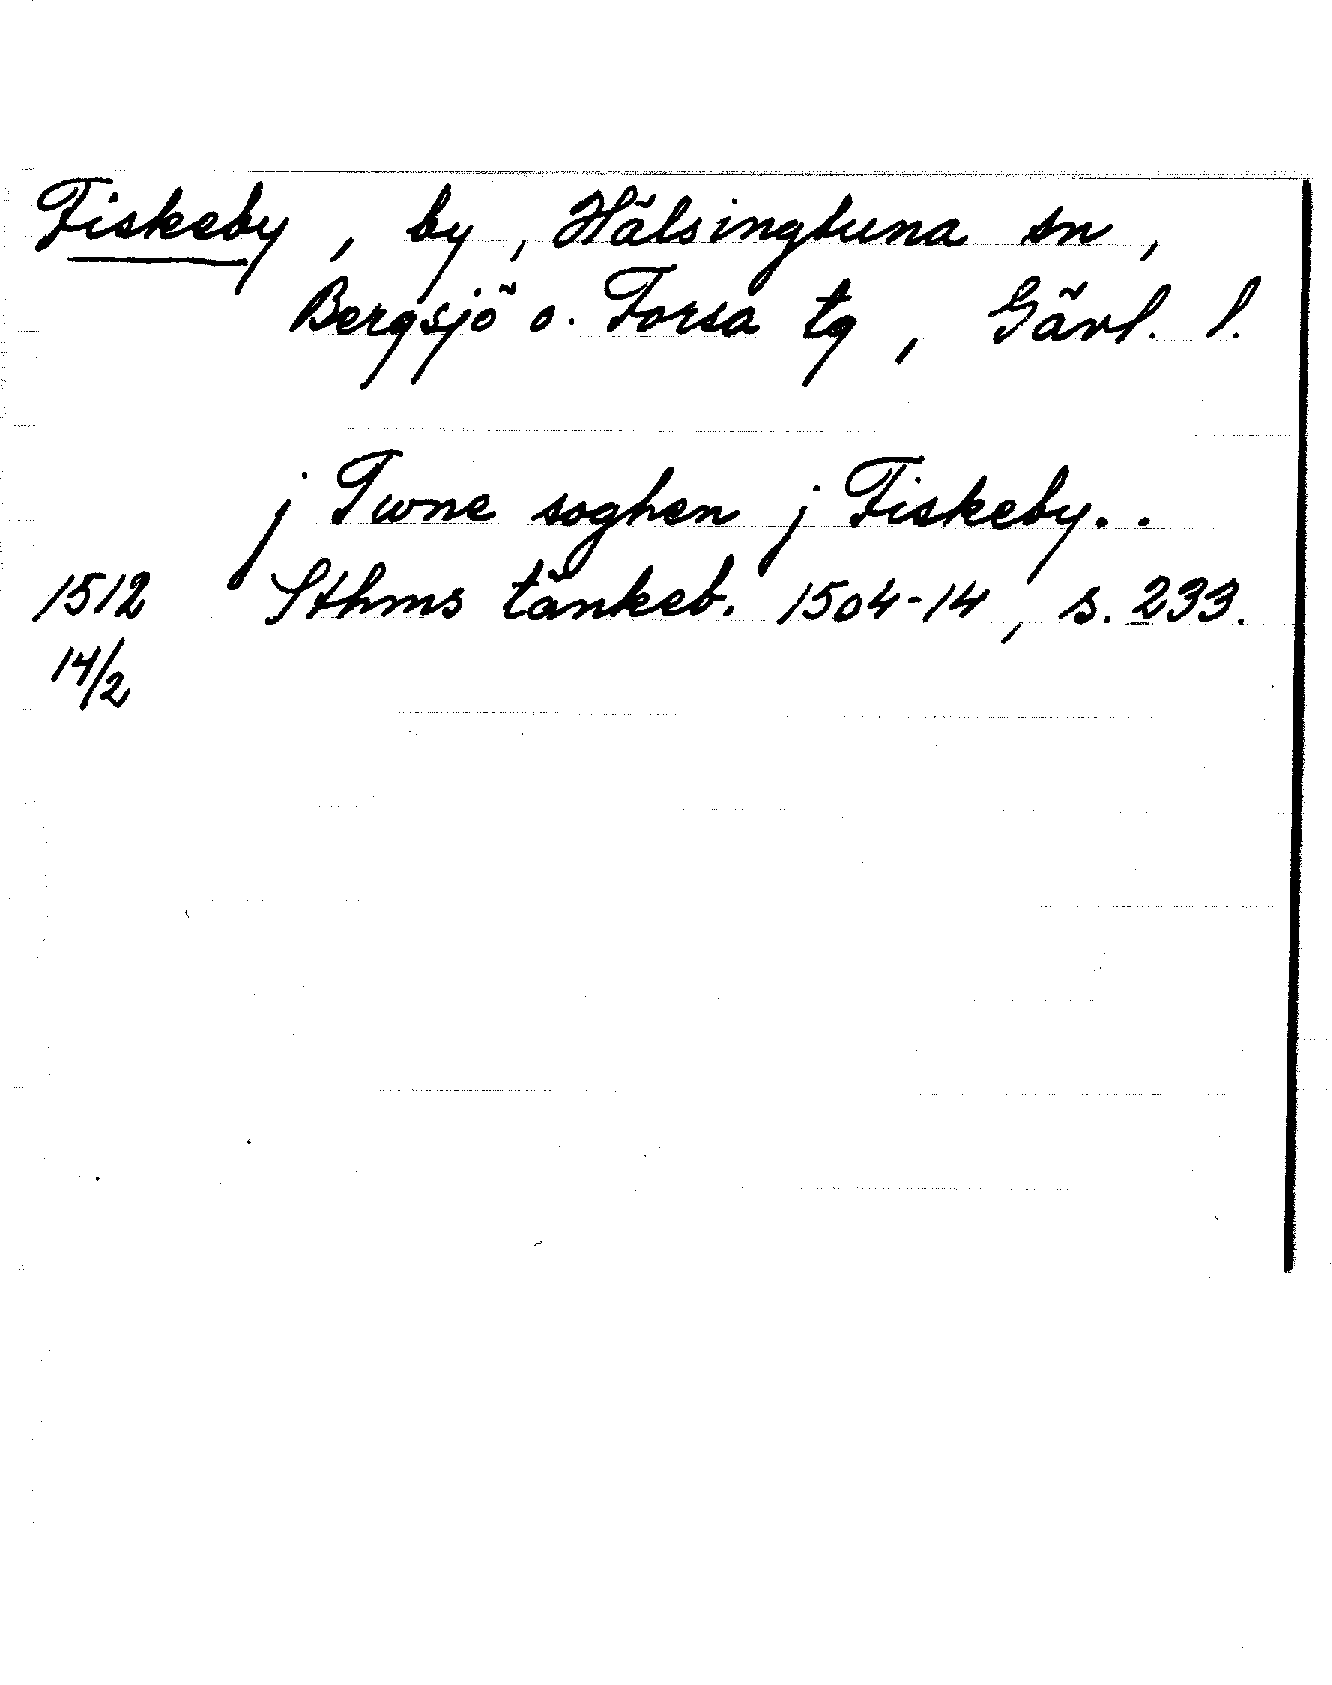 Fiskeby, by, Hälsingtuna sn,
Bergsjö o. Forsa tg, Gävl. l.
j Twne soghen j Fiskeby..
1512 Sthms tänkeb. 1504-14, s. 233.
14/2